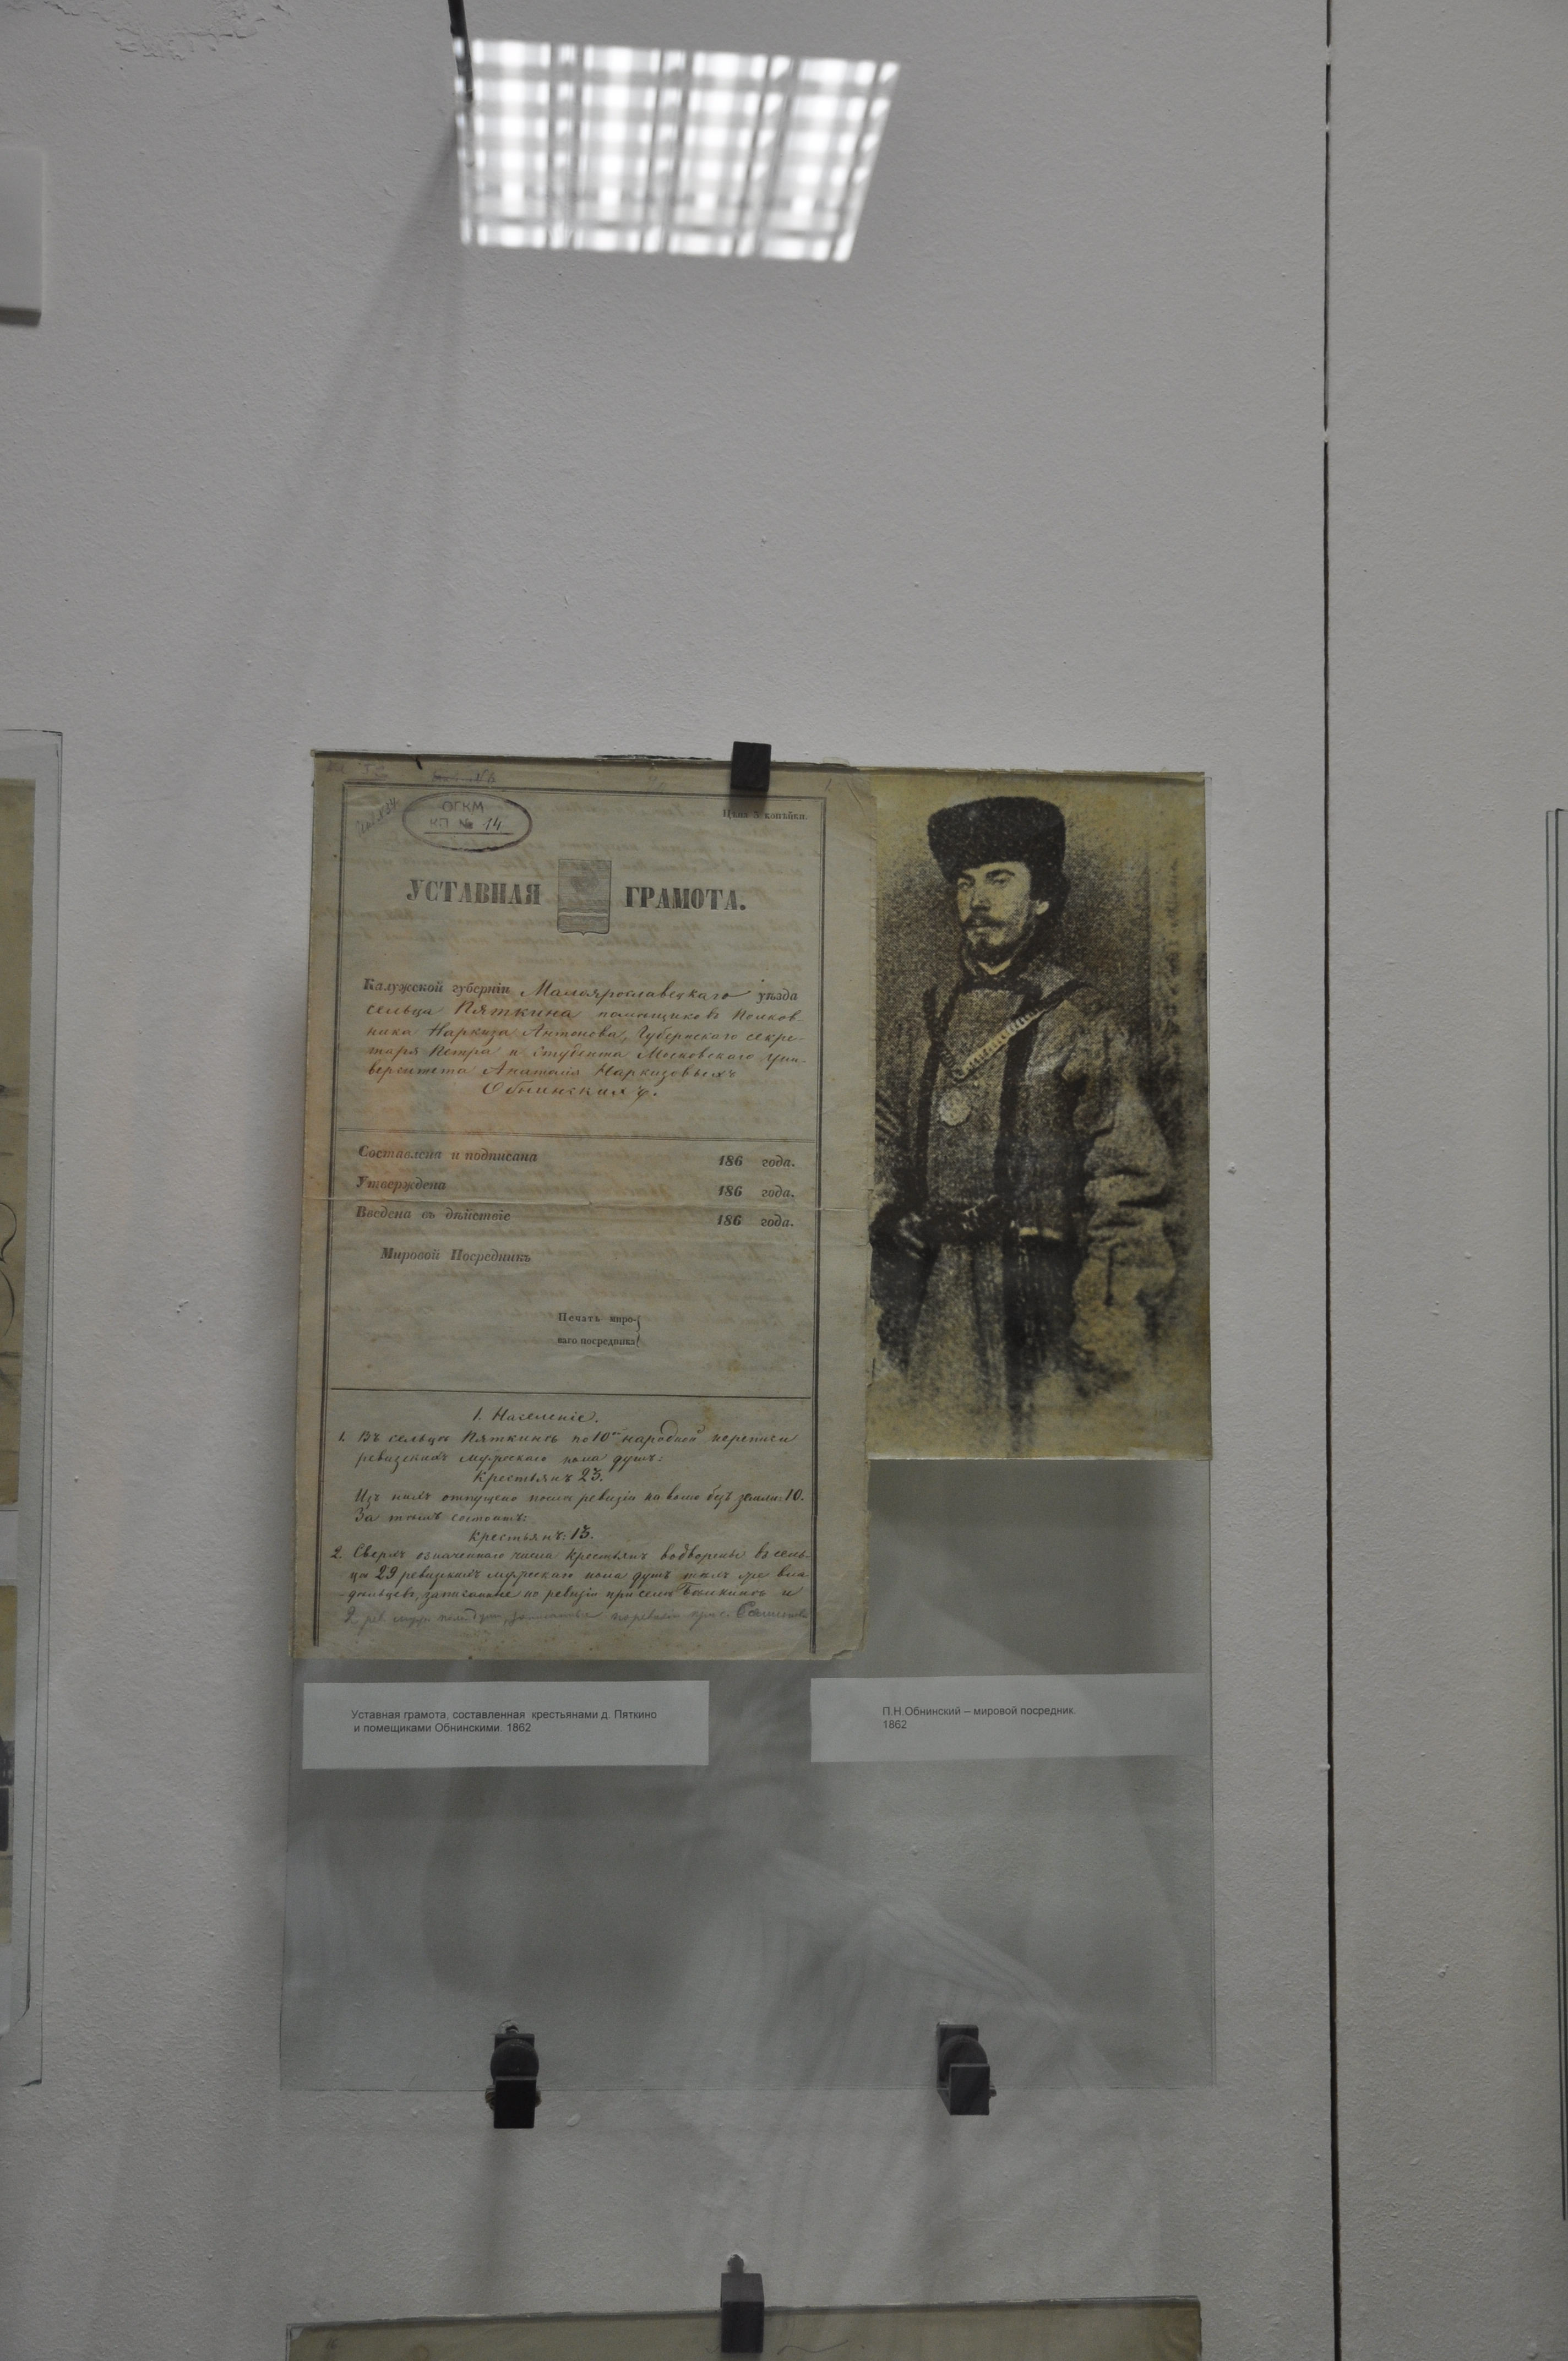 ОГКМ
КП № 14
Цѣна 3 копѣйки.
УСТАВНАЯ ГРАМОТА.
Калужской губерніи Малоярославецкаго уѣзда
сельца Пяткина помѣщиковъ Полков
ника Наркиза Антонова, Губернскаго секре-
таря Петра и студента Московскаго Уни-
верситета Анатолія Наркизовыхъ
Обнинскихъ.
Составлена и подписана 186 года.
Утверждена 186 года.
Введена въ дѣйствіе 186 года.
Мировой Посредникъ
Печать миро-
ваго посредника
1. Населеніе.
1. Въ сельцѣ Пяткинѣ по 10й народной переписи
ревизскихъ мужескаго пола душъ:
Крестьянъ 23.
Изъ нихъ отпущено послѣ ревизіи на волю безъ земли: 10.
За тѣмъ состоитъ:
Крестьянъ: 13.
2. Сверхъ означеннаго числа крестьянъ водворены въ сель-
цѣ 29 ревизскихъ мужескаго пола душъ тѣхъ же вла
дѣльцевъ, записанные по ревизіи при селѣ Бѣлкинѣ и
2 рев. муж. пола душ, записанные по ревизіи при с.
Уставная грамота, составленная крестьянами д. Пяткино
и помещиками Обнинскими. 1862
П.Н.Обнинский – мировой посредник.
1862